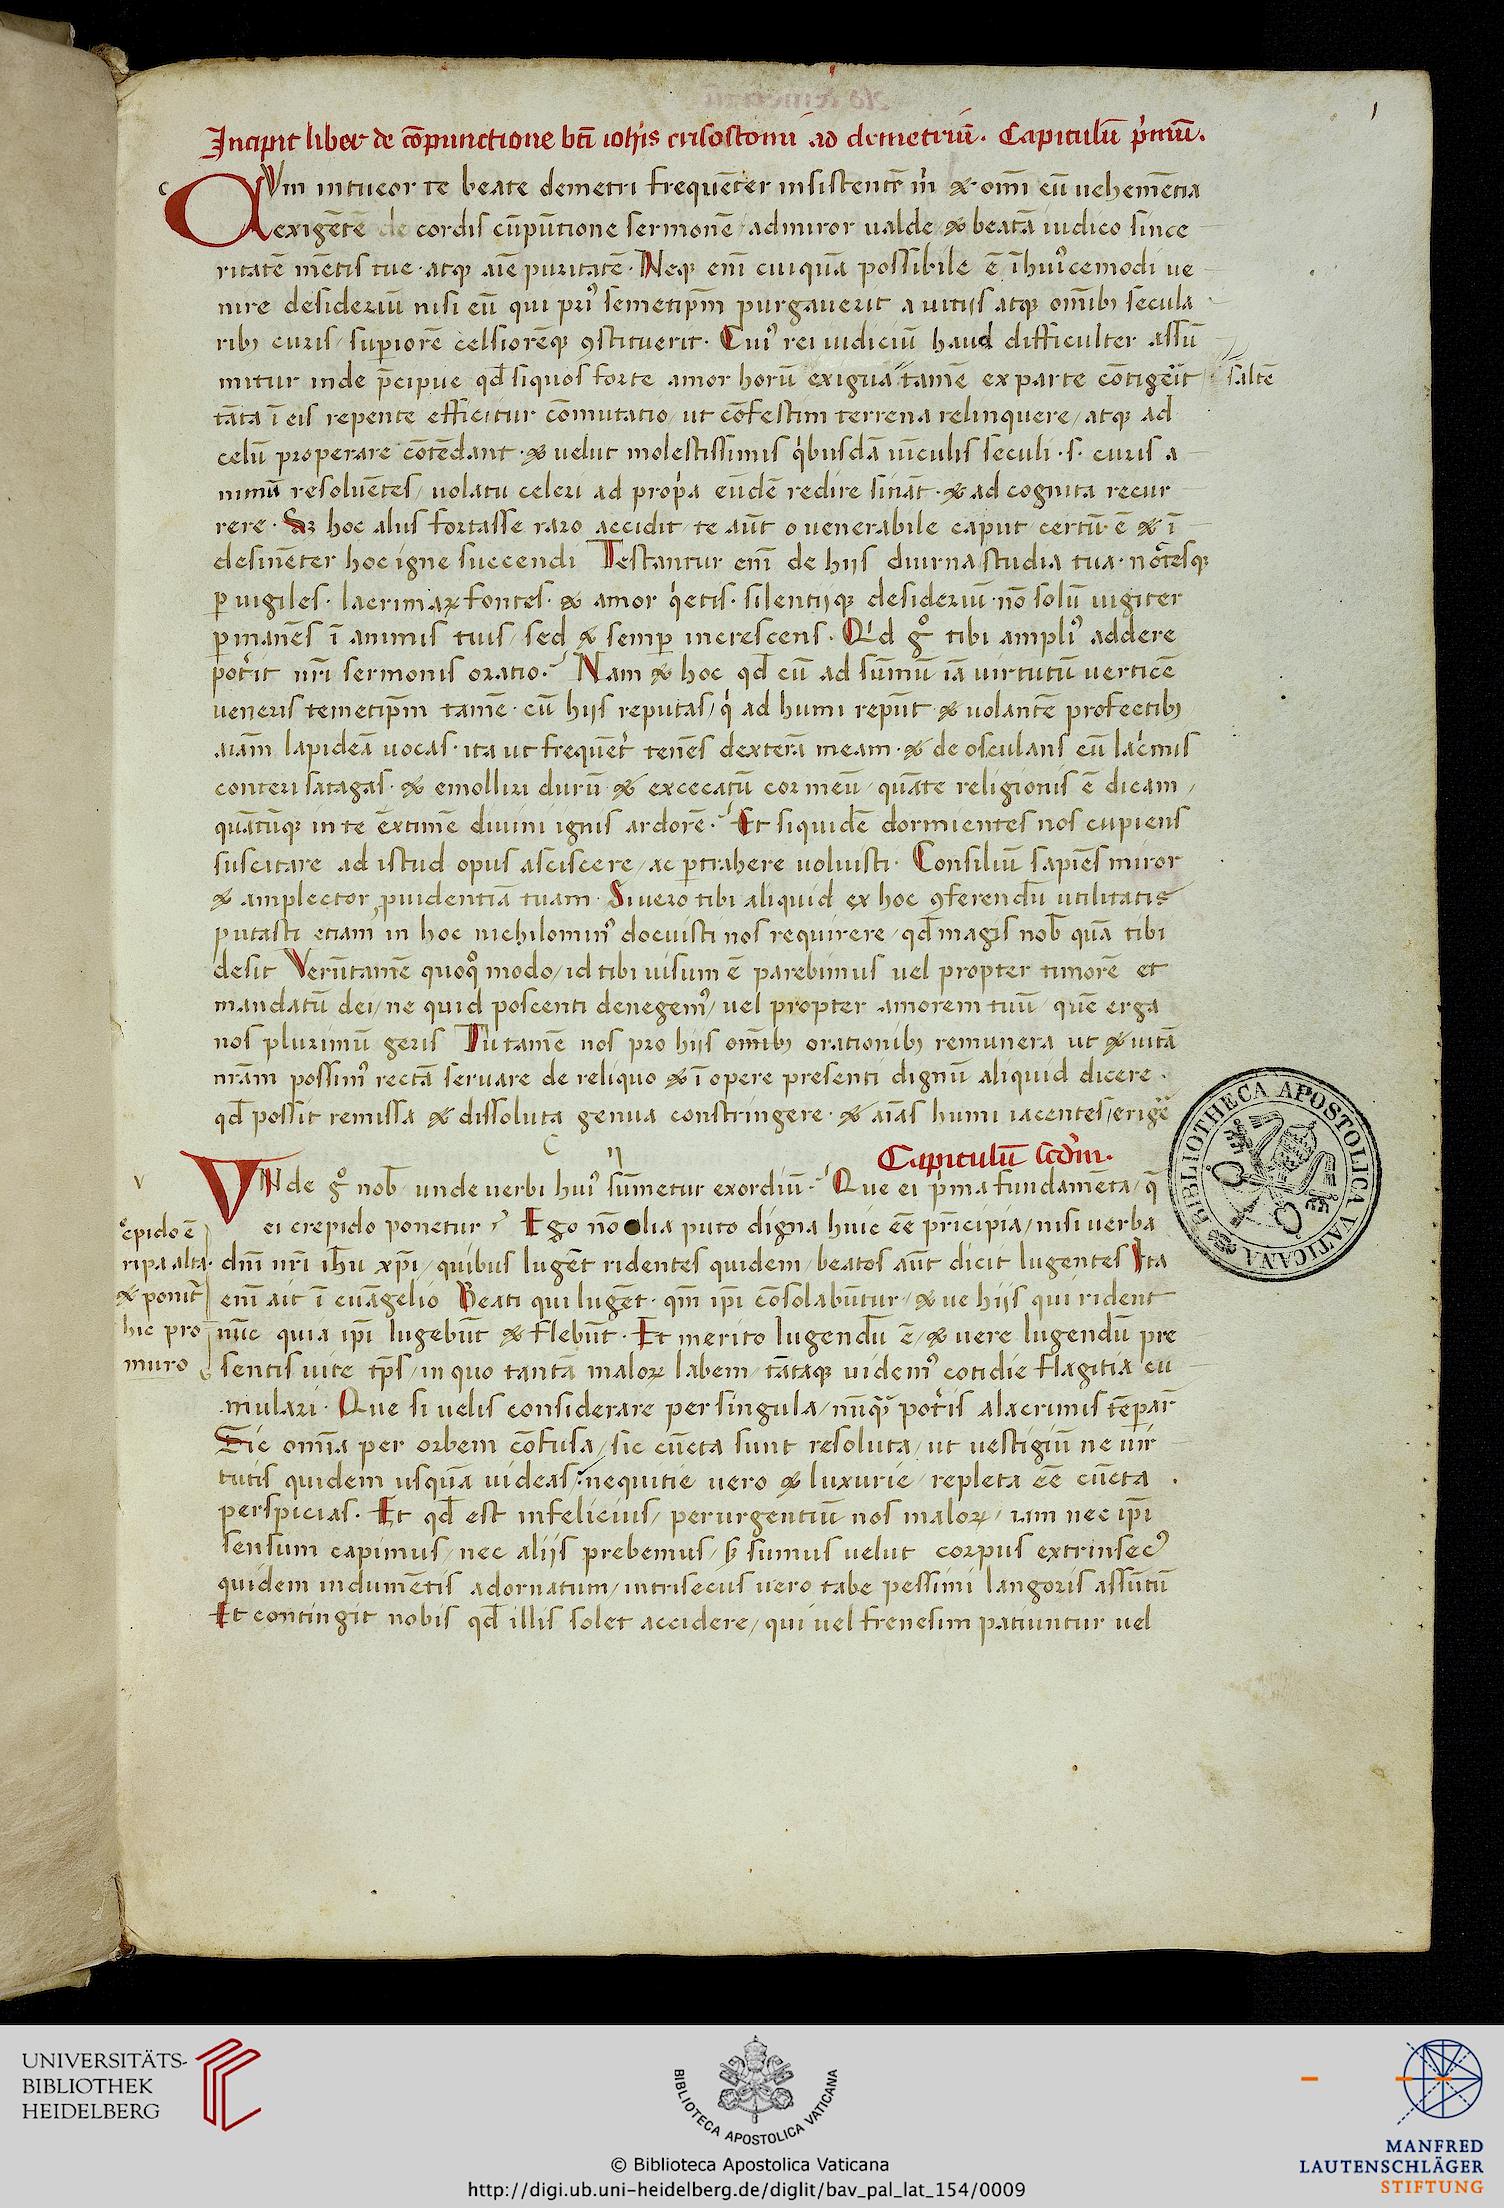 1
Incipit liber de cōpunctione btī ioħis crisostomi ad demetriū. Capitulū p̄mū.
c
QVm intueor te beate demetri frequēter insistentē m̄ & om̄i cū uehemētia
exigētē de cordis cūpūtione sermonē / admiror ualde & beatā iudico since
ritatē mētis tue · atqꝫ aīe puritatē · Neqꝫ enī cuiquā possibile ē ī huiꝰcemodi ue
nire desideriū nisi eū qui priꝰ semetip̄m purgauerit a uitijs atqꝫ om̄ibꝫ secula
ribꝫ curis / supiorē celsiorēqꝫ ꝯstituerit · Cuiꝰ rei iudiciū haud difficulter assū
mitur inde p̄cipue qđ siquos forte amor horū exigua tamē ex parte cōtigerit
saltē
tāta ī eis repente efficitur cōmutatio / ut cōfestim terrena relinquere / atqꝫ ad
celū properare cōtēdant · & uelut molestissimis qͥbusdā uīculis seculi · s · curis a
nimū resoluētes / uolatu celeri ad propͥa eūdē redire sināt · & ad cognita recur
rere · Sꝫ hoc alijs fortasse raro accidit / te aūt o uenerabile caput certū ē & ī
desinēter hoc igne succendi Testantur enī de hijs diurna studia tua · noctesqꝫ
ꝑuigiles · lacrimaꝝ fontes · & amor qͥetis · silentijqꝫ desideriū · nō solū uigiter
ꝑmanēs ī animis tuis / sed & semꝑ increscens · Qͥd gͦ tibi ampliꝰ addere
potͥit nr̄i sermonis oratio · Nam & hoc qđ cū ad sūmū iā uirtutū uerticē
ueneris temetip̄m tamē · cū hijs reputas / qͥ ad humi repūt & uolantē profectibꝫ
aīam lapideā uocas · ita ut frequētͥ tenēs dexterā meam · & de osculans cū lacͥmis
conteri satagas · & emolliri durū & excecatū cor meū / quāte religionis ē dicam /
quātūqꝫ in te extimē diuini ignis ardorē · Et siquidē dormientes nos cupiens
suscitare ad istud opus asciscere / ac ꝑtrahere uoluisti · Consiliū sapiēs miror
& amplector ꝓuidentiā tuam · Si uero tibi aliquid ex hoc ꝯferendū utilitatis
putasti etiam in hoc nichilominꝰ docuisti nos requirere / qđ magis nob̄ quā tibi
desit Verūtamē quoqͦ modo / id tibi uisum ē parebimus uel propter timorē et
mandatū dei / ne quid poscenti denegemꝰ / uel propter amorem tuū / quē erga
nos plurimū geris Tu tamē nos pro hijs om̄ibꝫ orationibꝫ remunera ut & uitā
nr̄am possimꝰ rectā seruare de reliquo & ī opere presenti dignū aliquid dicere ·
qđ possit remissa & dissoluta genua constringere · & aīas humi iacentes / erigē
Capitulū scđm.
v
VNde gͦ nob̄ / unde uerbi huiꝰ sūmetur exordiū · Que ei pͥma fundamēta / q̄
ei crepido ponetur · Ego nō alia puto digna huic eē pͥncipia / nisi uerba
dn̄i nr̄i ih̄u xp̄i / quibus lugēt ridentes quidem / beatos aūt dicit lugentes Ita
enī ait ī euāgelio Beati qui lugēt · qm̄ ip̄i cōsolabūtur / & ue hijs qui rident
nūc quia ip̄i lugebūt & flebūt · Et merito lugendū ē / & uere lugendū pre
sentis uite tp̄s / in quo tantā maloꝝ labem / tātaqꝫ uidemꝰ cotidie flagitia cu
mulari · Que si uelis considerare per singula / nūqͣ potͥis a lacrimis tēꝑar̄
Sic om̄ia per orbem cōfusa / sic cūcta sunt resoluta / ut uestigiū ne uir
tutis quidem usquā uideas / nequitie uero & luxurie / repleta eē cūcta ·
perspicias · Et qđ est infelicius / perurgentiū nos maloꝝ / iam nec ip̄i
sensum capimus / nec alijs prebemus / sꝫ sumus uelut corpus extrinsecꝰ
quidem indumētis adornatum / intrisecus uero tabe pessimi langoris assūtū
Et contingit nobis qđ illis solet accidere / qui uel frenesim patiuntur uel
c̄pido ē
ripa alta ·
& ponitͬ
hic pro
muro
BIBLIOTHECA APOSTOLICA VATICANA
UNIVERSITÄTS-
BIBLIOTHEK
HEIDELBERG
BIBLIOTECA APOSTOLICA VATICANA
© Biblioteca Apostolica Vaticana
http://digi.ub.uni-heidelberg.de/diglit/bav_pal_lat_154/0009
MANFRED
LAUTENSCHLÄGER
STIFTUNG